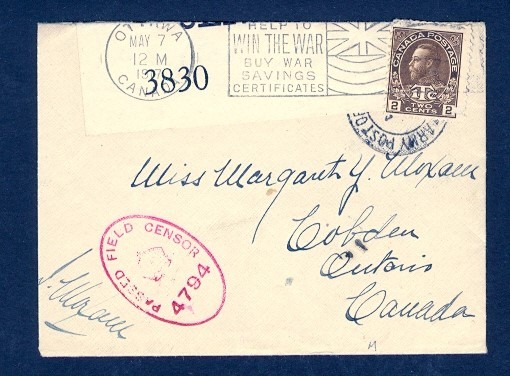 OTTAWA
MAY 7
12 M
CANADA
3830
HELP TO
WIN THE WAR
BUY WAR
SAVINGS
CERTIFICATES
CANADA POSTAGE
2 TWO CENTS 2
ARMY POST OF
Miss Margaret Y. Moxam
Cobden
Ontario
Canada
PASSED FIELD CENSOR
4794
J. Moxam